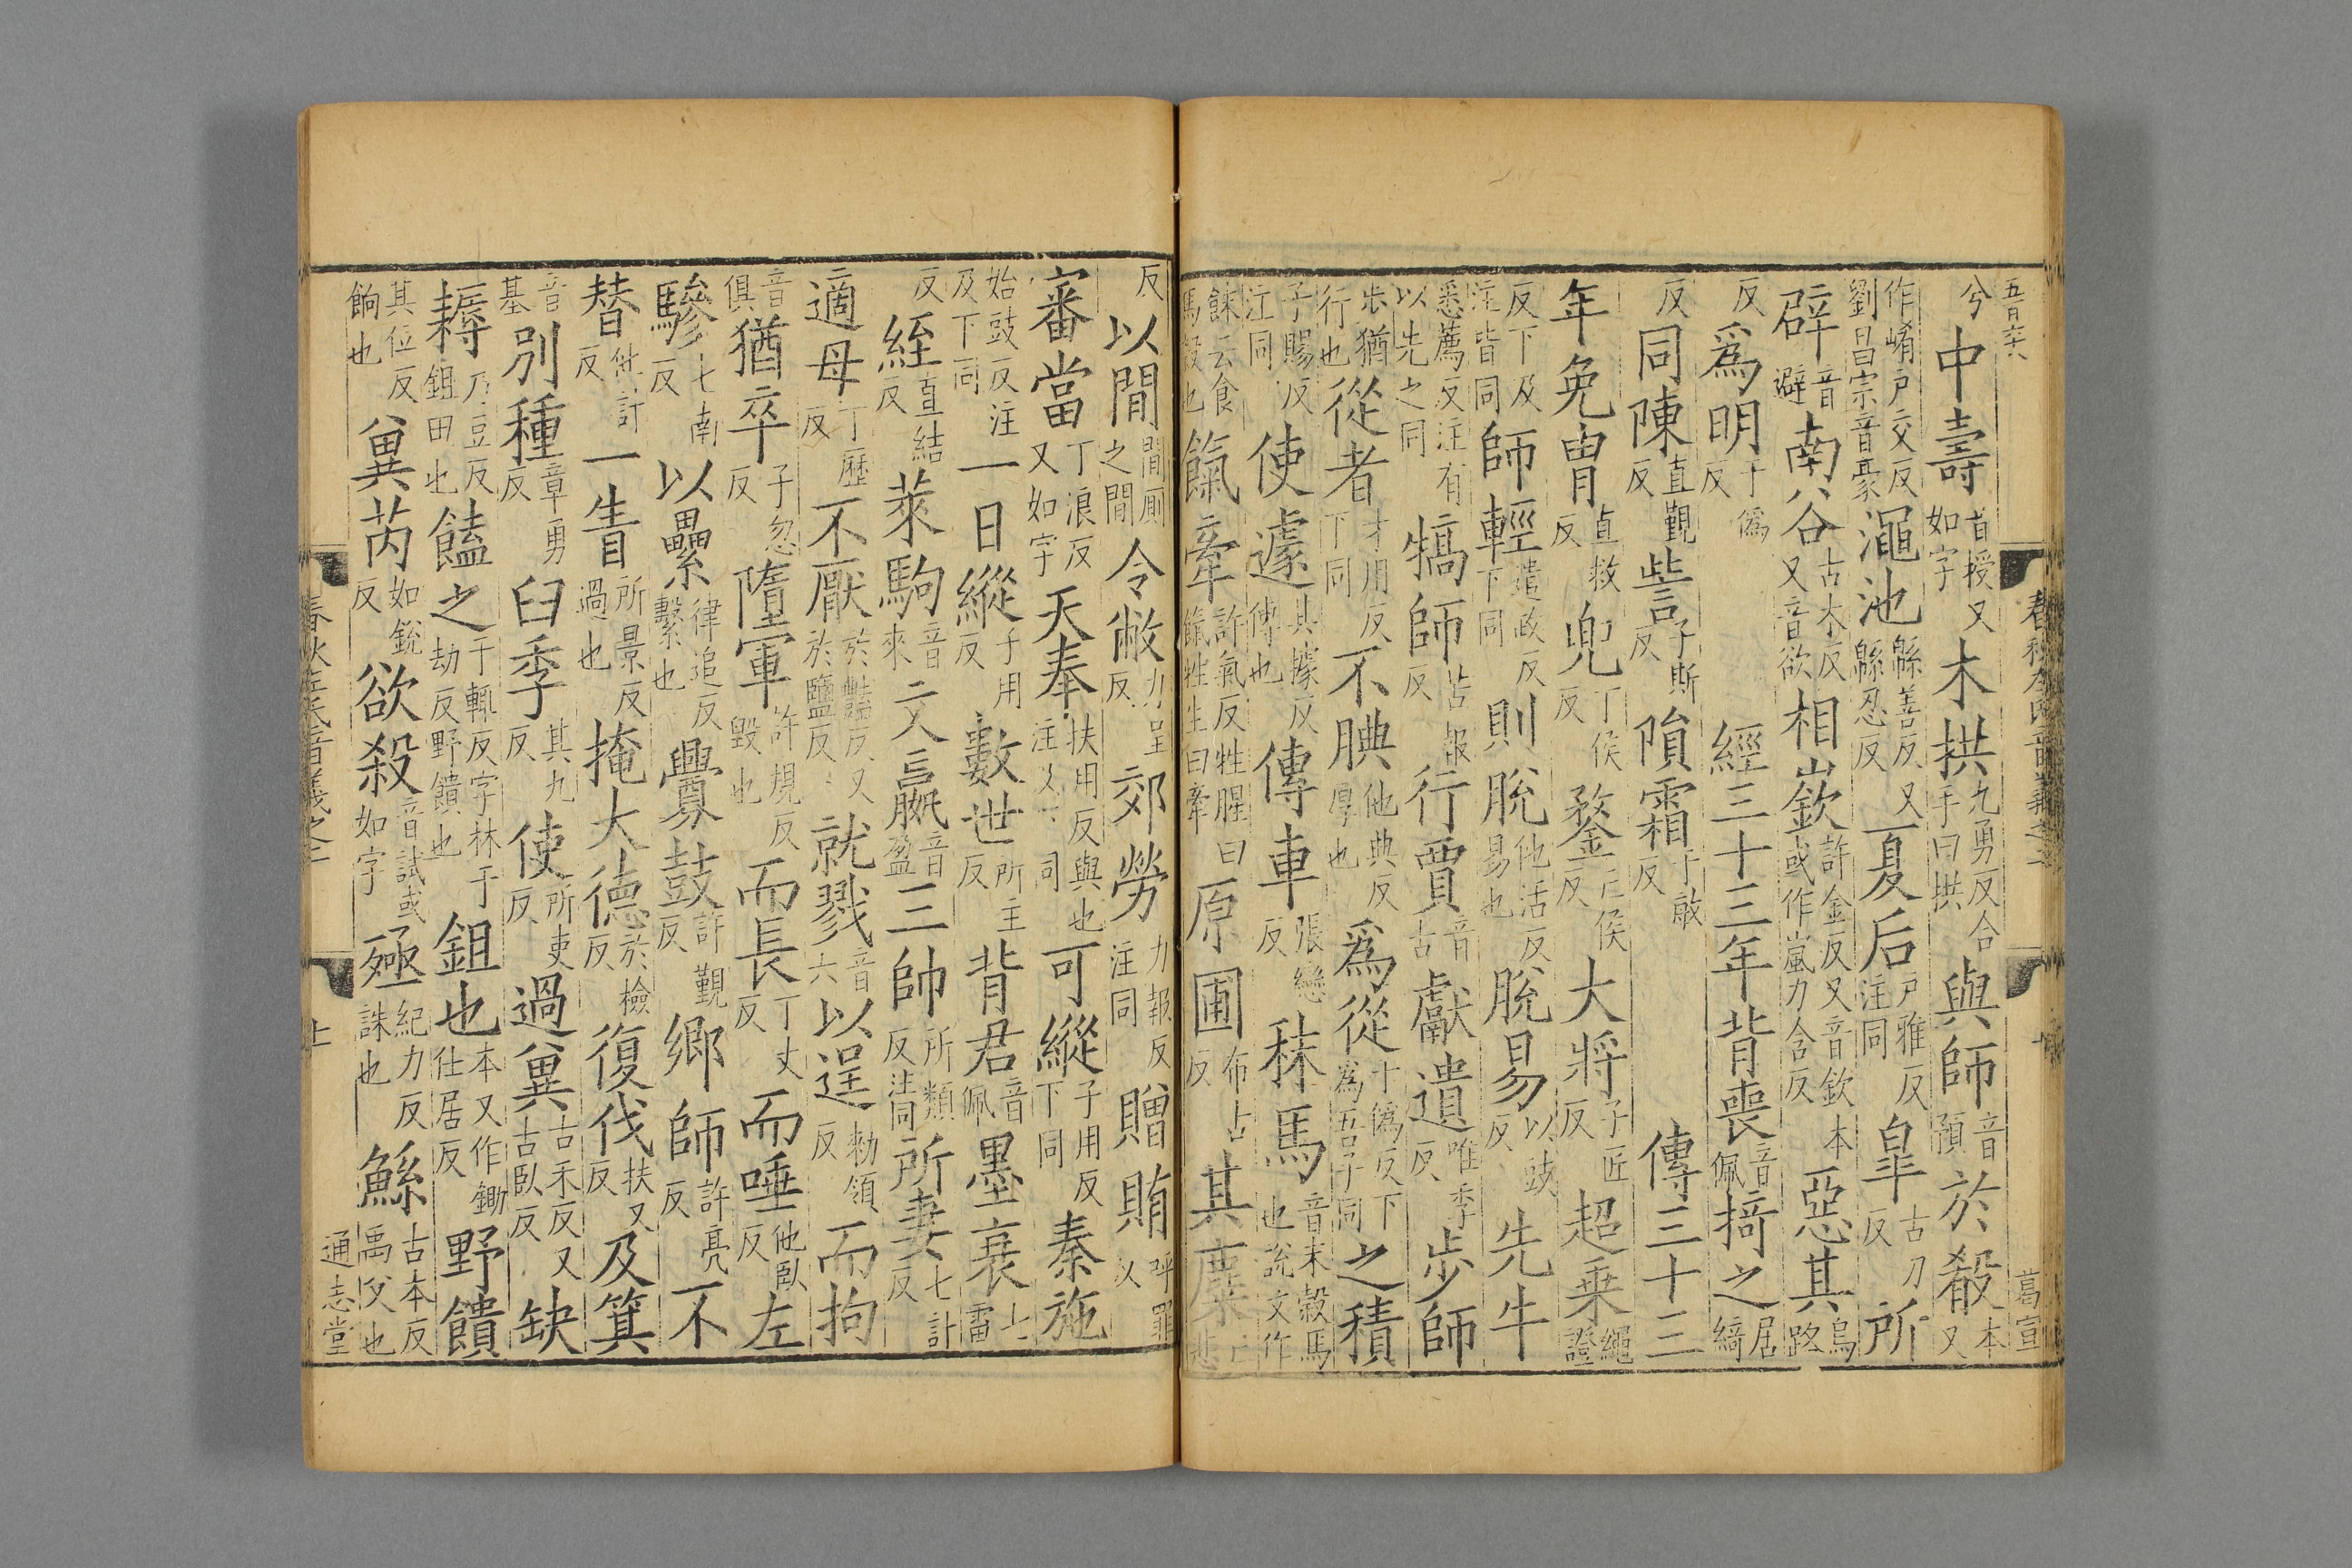 五百六 葛宣
兮 中壽 音授又如字 木拱 九勇反合手曰拱 與師 音預 於殽 本又
作崤户交反劉昌宗音豪 澠池 緜善反又緜忍反 夏后 户雅反注同 皐 古刀反 所
辟 音避 南谷 古木反又音欲 相嶔 許金反又音欽本或作嵐力含反 惡其 烏路
反 爲明 于僞反 經三十三年背喪 音佩 掎之 居綺
反 同陳 直覲反 訾 子斯反 隕霜 于敏反 傳三十三
年免冑 直救反 兜 丁侯反 鍪 亡侯反 大將 子匠反 超乗 繩證
反下及注皆同 師輕 遣政反下同 則脫 他活反易也 脫易 以豉反 先牛
悉薦反注有以先之同 犒師 苦報反 行賈 音古 獻遺 唯季反 步師
步猶行也 從者 才用反下同 不腆 他典反厚也 爲從 于僞反下爲吾子同 之積
子賜反江同 使遽 其據反傳也 傳車 張戀反 秣馬 音末穀馬也說文作
餗云食馬穀也 餼牽 許氣反牲腥曰餼牲生曰牽 原圃 布古反 其麋 亡悲
反 以閒 閒厠之閒 令敝 力呈反 郊勞 力報反注同 贈賄 呼罪
審當 丁浪反又如字 天奉 扶用反與也注 同 可縱 子用反下同 秦施
始豉反注及下同 一日縱 子用反 數世 所主反 背君 音佩 墨衰 七雷
反 絰 直結反 萊駒 音來 文嬴 音盈 三帥 所類反注同 所妻 七計反
適母 丁歷反 不厭 於豔反又於鹽反 就戮 音六 以逞 勑領反 而拘
音俱 猶卒 子忽反 墮軍 許規反毀也 而長 丁丈反 而唾 他臥反 左
驂 七南反 以纍 律追反繫也 釁鼓 許覲反 鄉師 許亮反 不
替 他計反 一眚 所景反過也 掩大德 於檢反 復伐 扶又反 及箕
音基 別種 章勇反 臼季 其九反 使 所吏反 過冀 古禾反又古臥反 缺
耨 乃豆反鉏田也 饁之 于輒反字林于劫反野饋也 鉏也 本又作鋤仕居反 野饋
其位反餉也 冀芮 如銳反 欲殺 音試或如字 殛 紀力反誅也 鯀 古本反禹父也
春秋左氏音義之二 通志堂